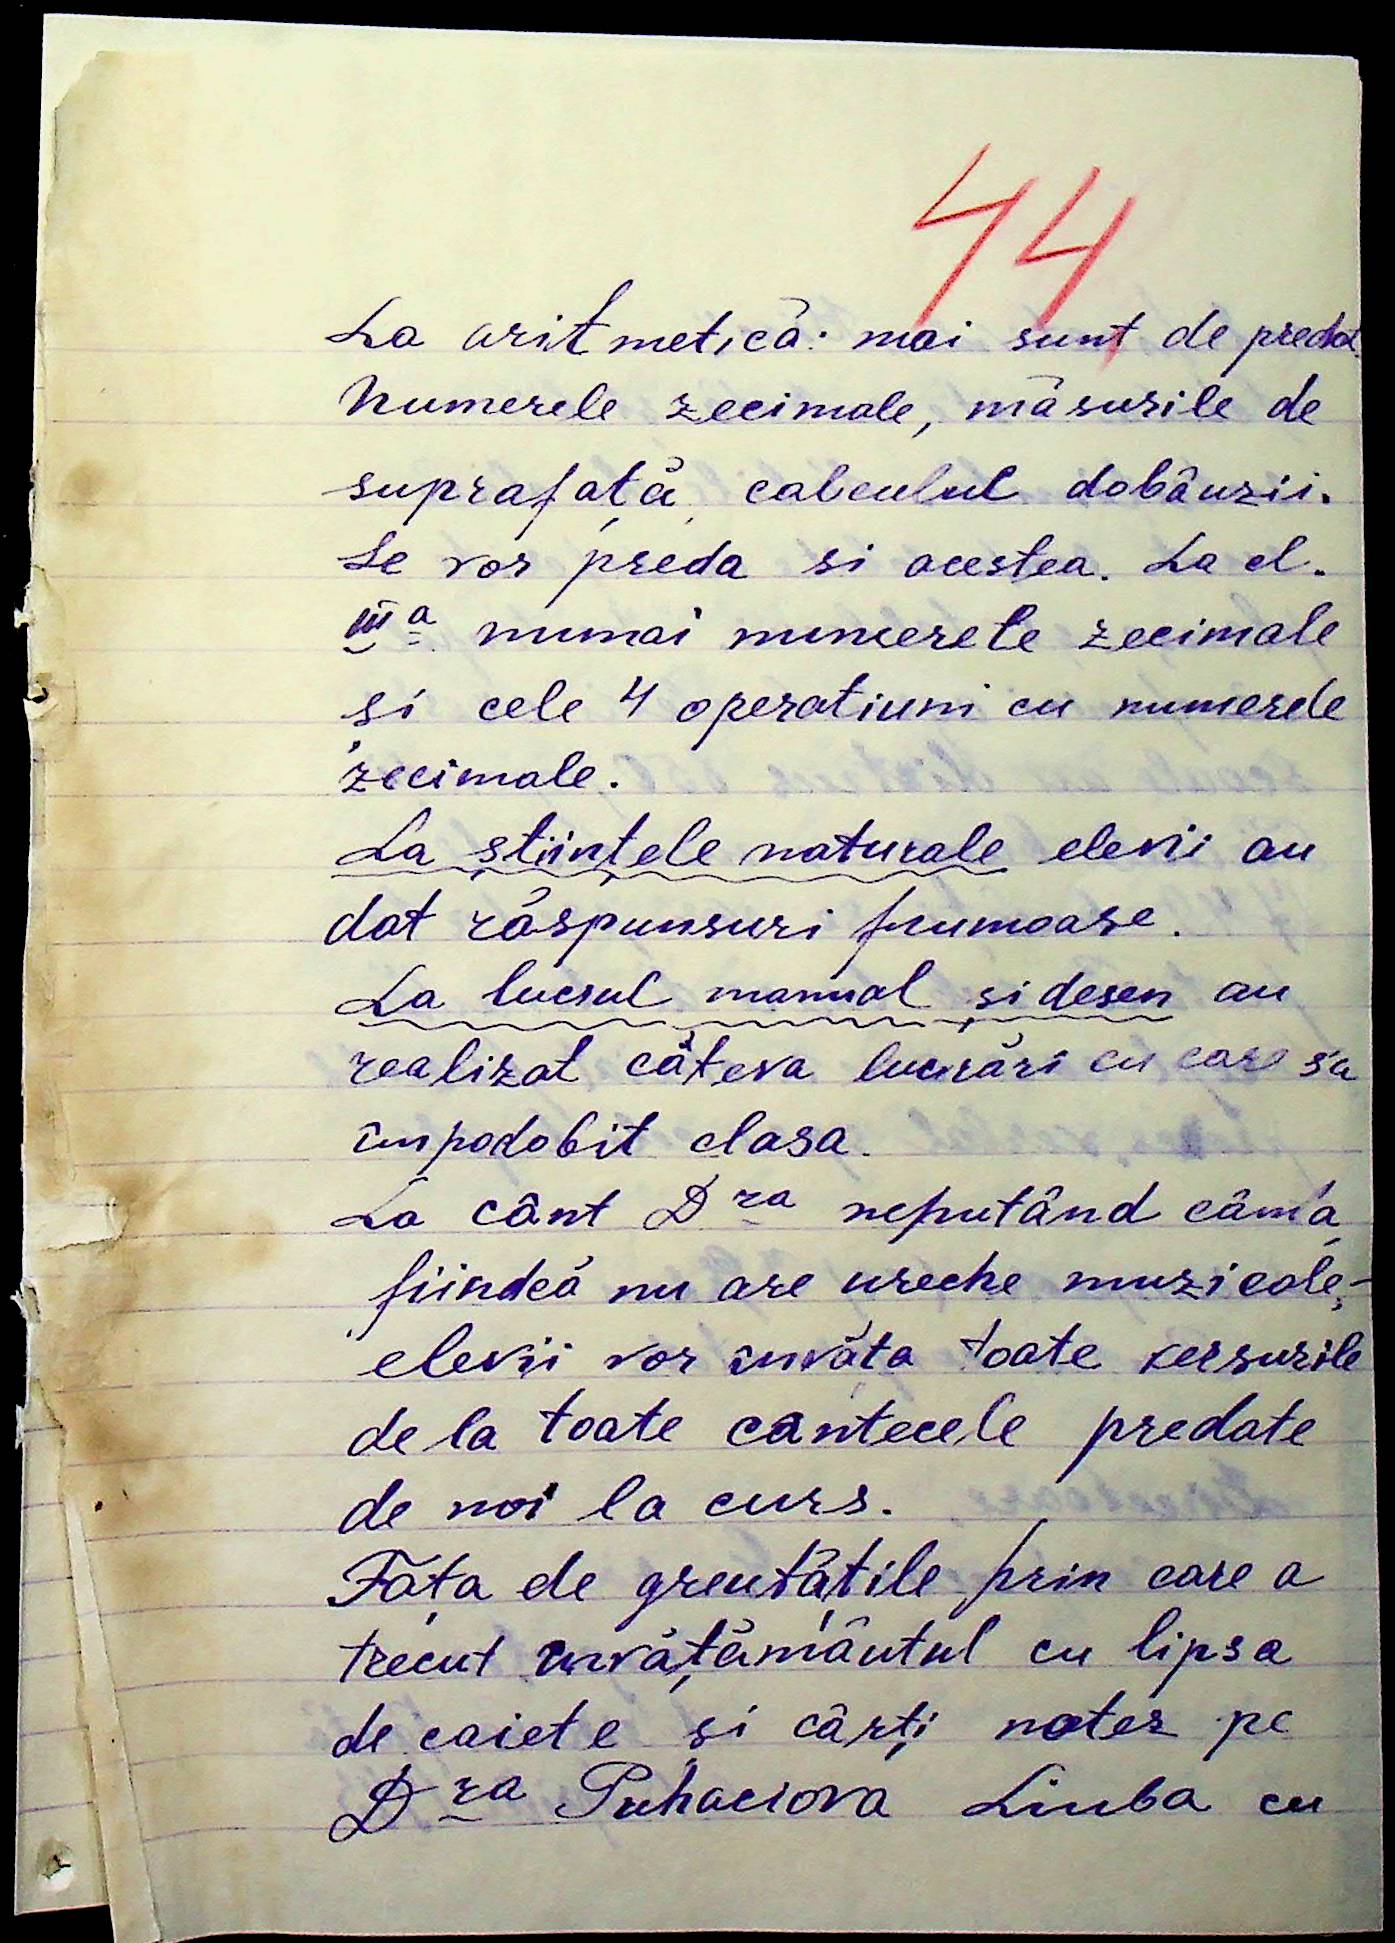 44
La aritmetică: mai sunt de predat.
Numerele zecimale, măsurile de
suprafață, calculul dobânzii.
Se vor preda si acestea. La cl.
III a numai numerele zecimale
și cele 4 operatiuni cu numerele
zecimale.
La științele naturale elevii au
dat răspunsuri frumoase.
La lucrul manual și desen au
realizat câteva lucrări cu care s'a
împodobit clasa.
La cânt Dra neputând cânta
fiindcă nu are ureche muzicale,-
elevii vor învăța toate versurile
de la toate cantecele predate
de noi la curs.
Fața de greutățile prin care a
trecut învățământul cu lipsa
de caiete și cărți notez pe
Dra Puhaciova Liuba cu